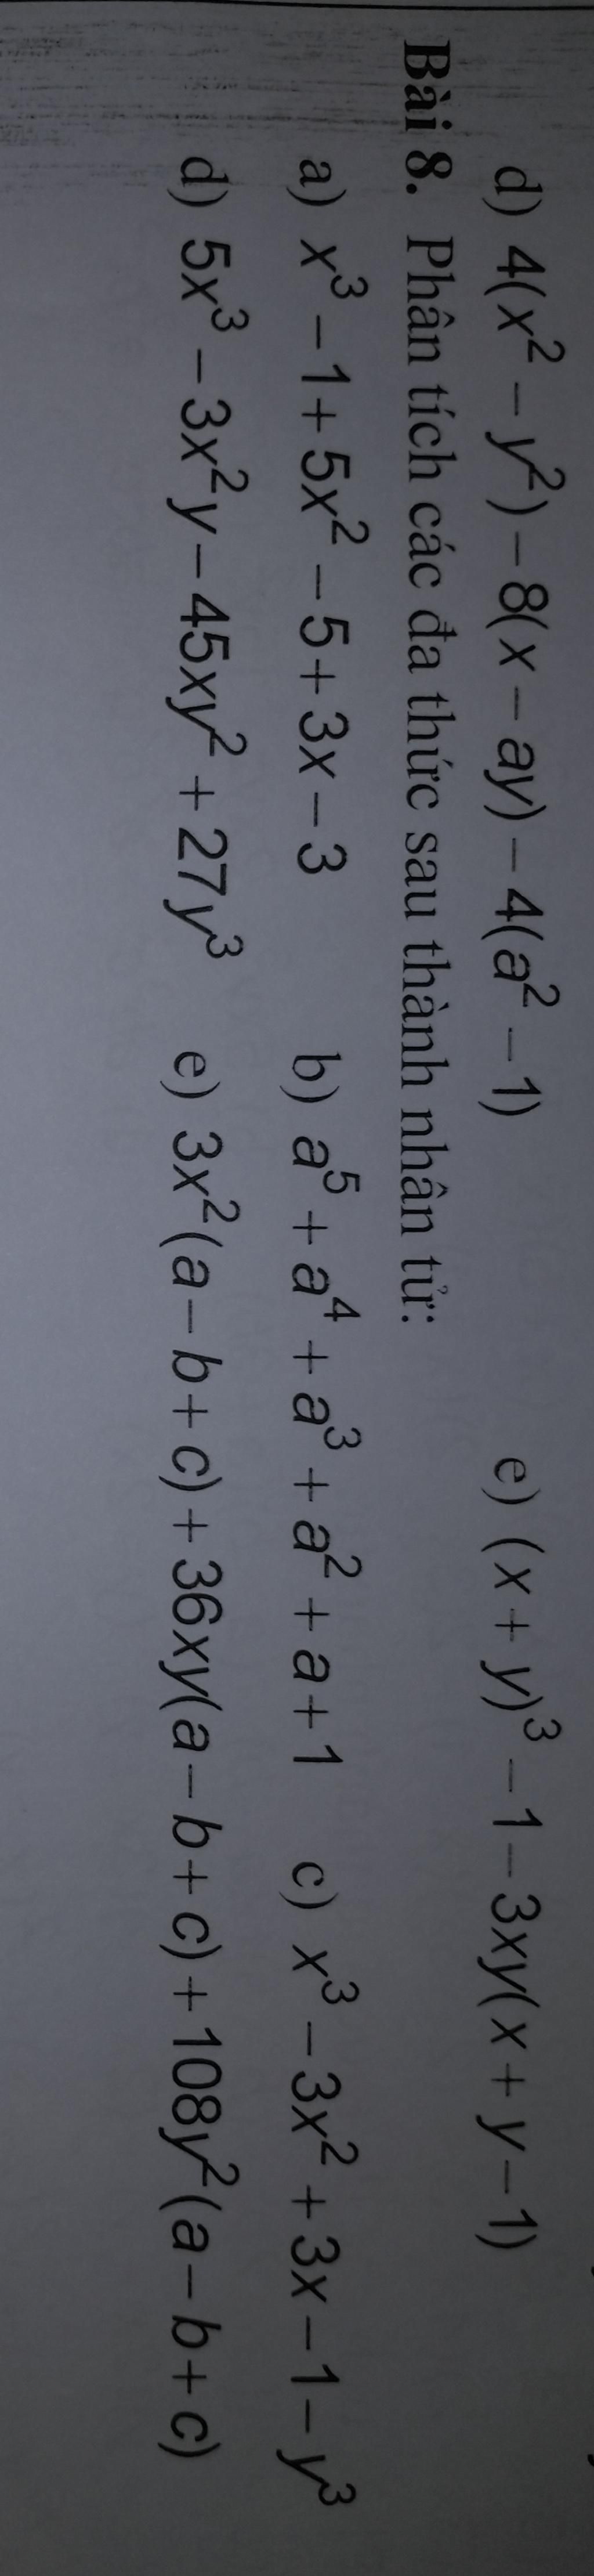 d) 4(x² − y²) − 8(x − ay) − 4(a² − 1) e) (x + y)³ − 1 − 3xy(x + y − 1)
Bài 8. Phân tích các đa thức sau thành nhân tử:
a) x³ − 1 + 5x² − 5 + 3x − 3 b) a⁵ + a⁴ + a³ + a² + a + 1 c) x³ − 3x² + 3x − 1 − y³
d) 5x³ − 3x²y − 45xy² + 27y³ e) 3x²(a − b + c) + 36xy(a − b + c) + 108y²(a − b + c)